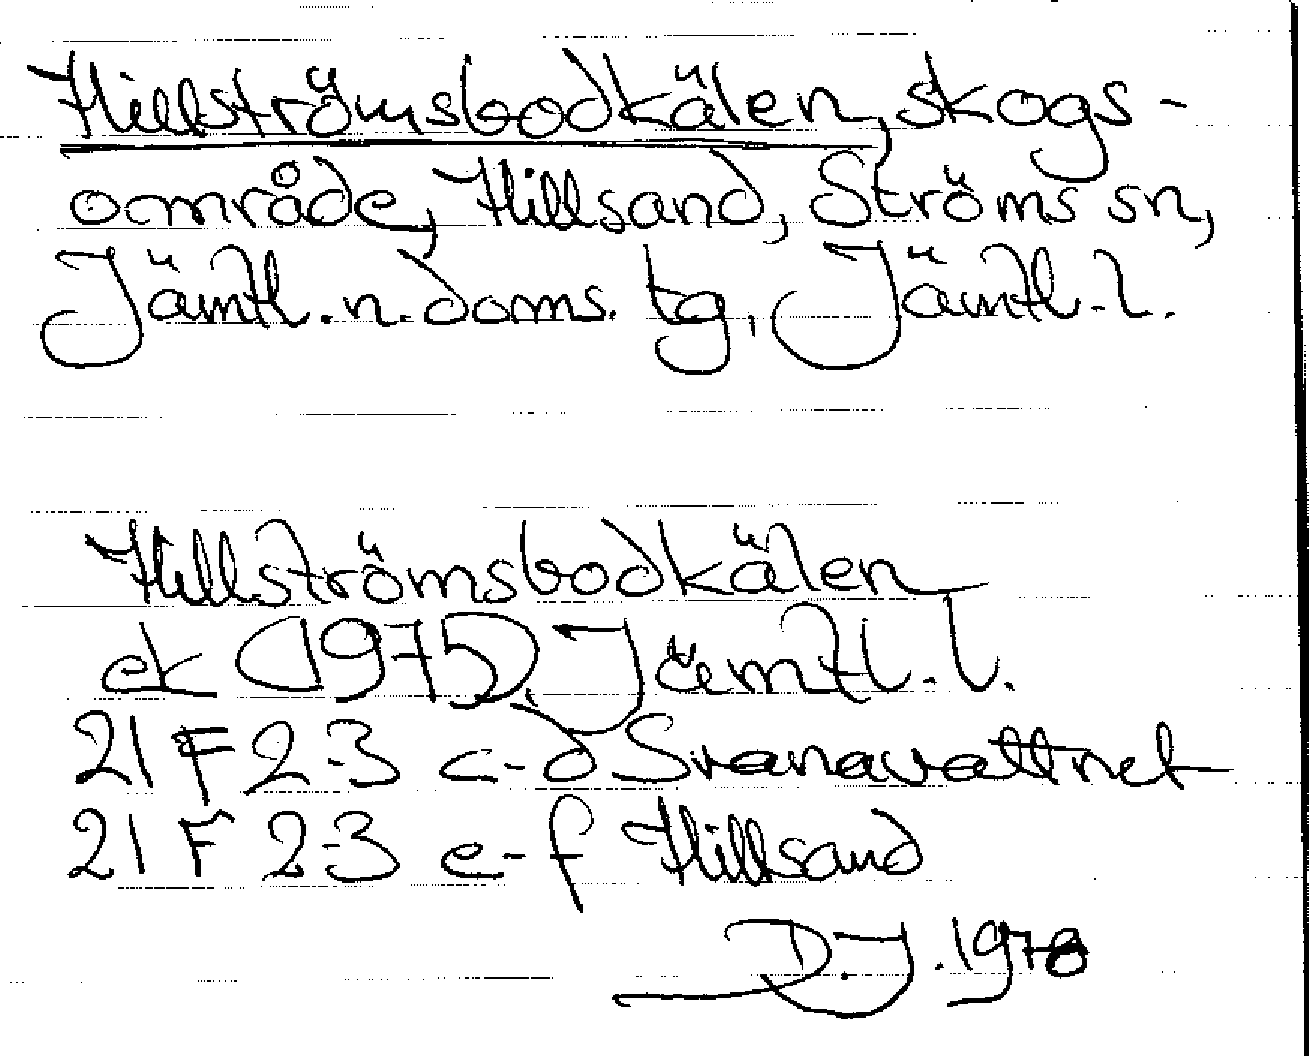 Hillströmsbodkälen, skogs-
område, Hillsand, Ströms sn,
Jämtl. n. doms. tg, Jämtl. l.
Hillströmsbodkälen
ek (1975) Jämtl. l.
21 F 2-3 c-d Svanavattnet
21 F 2-3 e-f Hillsand
D.J. 1978